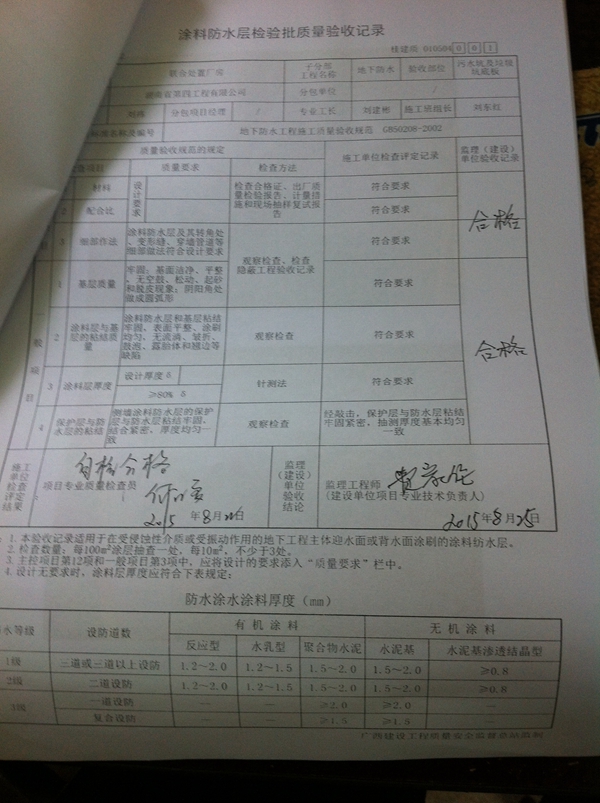 涂料防水层检验批质量验收记录
桂建质 010504 0 0 1
联合处置厂房 子分部工程名称 地下防水 验收部位 污水坑及垃圾坑底板
湖南省第四工程有限公司 分包单位 / /
分包项目经理 / 专业工长 刘建彬 施工班组长 刘东红
标准名称及编号 地下防水工程施工质量验收规范 GB50208-2002
质量验收规范的规定 施工单位检查评定记录 监理(建设)单位验收记录
项目 质量要求 检查方法
材料 设计要求 检查合格证、出厂质量检验报告、计量措施和现场抽样复试报告 符合要求 合格
2 配合比 符合要求
3 细部作法 涂料防水层及其转角处、变形缝、穿墙管道等细部做法符合设计要求 观察检查、检查隐蔽工程验收记录 符合要求
一般项目
1 基层质量 牢固;基面洁净、平整、无空鼓、松动、起砂和脱皮现象;阴阳角处做成圆弧形 符合要求 合格
2 涂料层与基层的粘结质量 涂料防水层和基层粘结牢固、表面平整、涂刷均匀、无流淌、皱折、鼓泡、露胎体和翘边等缺陷 观察检查 符合要求
3 涂料层厚度 设计厚度 δ 针测法 符合要求
≥80% δ
4 保护层与防水层的粘结 侧墙涂料防水层的保护层与防水层粘结牢固、结合紧密、厚度均匀一致 观察检查 经敲击,保护层与防水层粘结牢固紧密,抽测厚度基本均匀一致
施工单位检查评定结果 自检合格
项目专业质量检查员
2015 年 8 月 日
监理(建设)单位验收结论
监理工程师
(建设单位项目专业技术负责人)
2015 年 8 月 25 日
1. 本验收记录适用于在受侵蚀性介质或受振动作用的地下工程主体迎水面或背水面涂刷的涂料防水层。
2. 检查数量:每100m²涂层抽查一处,每10m²,不少于3处。
3. 主控项目第12项和一般项目第3项中,应将设计的要求添入“质量要求”栏中。
4. 设计无要求时,涂料层厚度应符合下表规定:
防水涂水涂料厚度(mm)
水等级 设防道数 有机涂料 无机涂料
反应型 水乳型 聚合物水泥 水泥基 水泥基渗透结晶型
1级 三道或三道以上设防 1.2~2.0 1.2~1.5 1.5~2.0 1.5~2.0 ≥0.8
2级 二道设防 1.2~2.0 1.2~1.5 1.5~2.0 1.5~2.0 ≥0.8
3级 一道设防 — — ≥2.0 ≥2.0 —
复合设防 — — ≥1.5 ≥1.5 —
广西建设工程质量安全监督总站监制